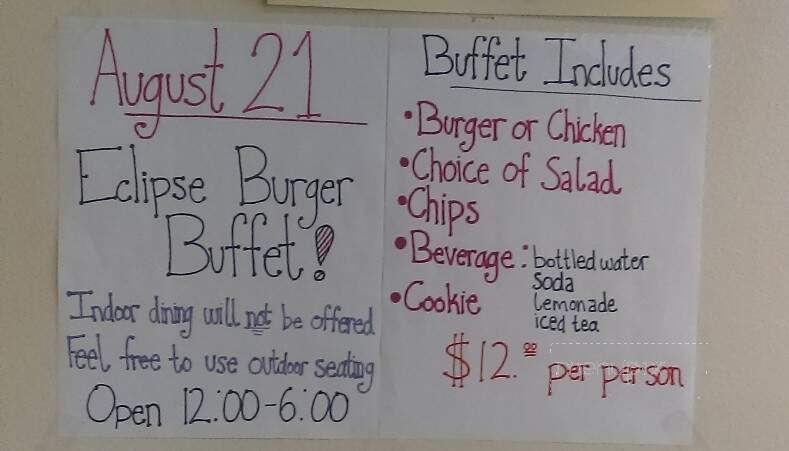 August 21
Eclipse Burger
Buffet!
Indoor dining will not be offered
Feel free to use outdoor seating
Open 12:00-6:00
Buffet Includes
•Burger or Chicken
•Choice of Salad
•Chips
•Beverage: bottled water
soda
lemonade
iced tea
•Cookie
$12.00 per person